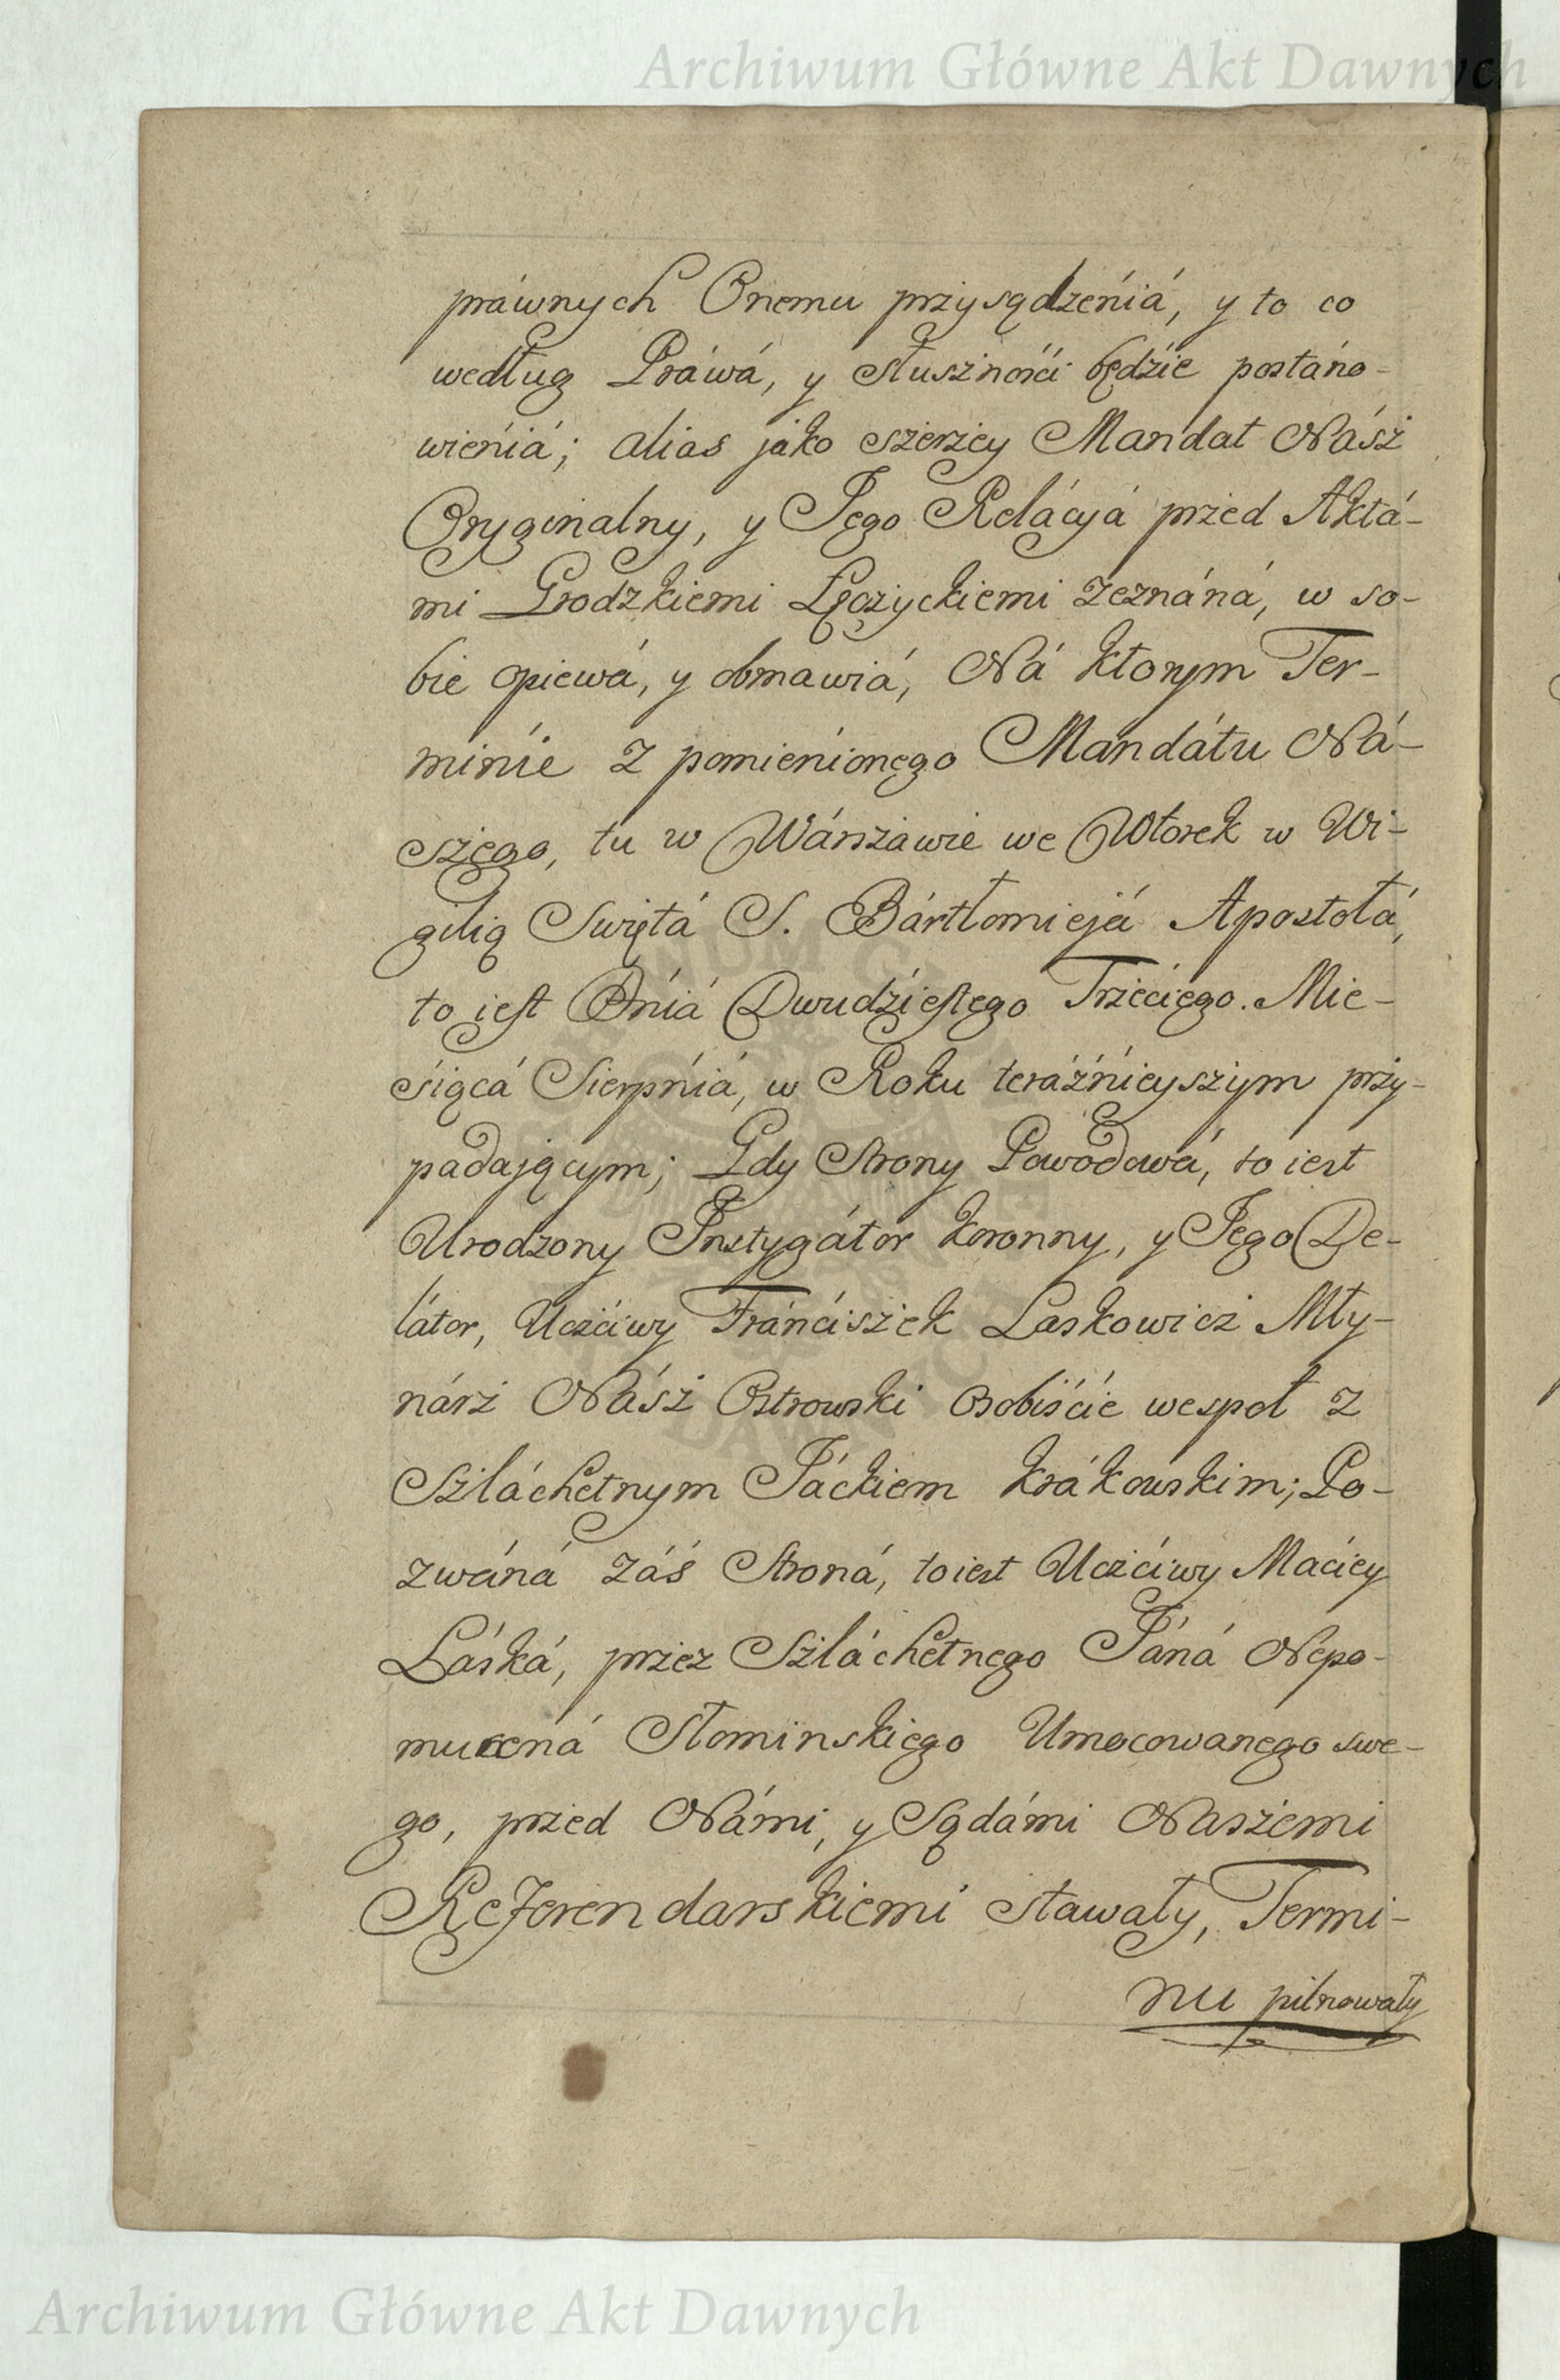 Archiwum Główne Akt Dawnych
práwnych Onemu przysądzeńiá, y to co
według Práwá, y słuszności będźie postáno-
wieńiá; alias jáko szerzey Mandat Násż
Oryginalny, y Jego Relácyá przed Aktá-
mi Grodzkiemi Łęczyckiemi zeznáná, w so-
bie opiewá, y obmawiá, Ná ktorym Ter-
minie z pomieńionego Mandátu Ná-
szego, tu w Wárszawie we Wtorek w Wi-
gilią Swiętá S. Bártłomiejá Apostołá,
to iest Dńiá Dwudźiestego Trzećiego. Mie-
śiącá Sierpńiá, w Roku teráźńieyszym przy-
padającym; Gdy Strony Powodowá, to iest
Urodzony Instygátor Koronny, y Jego De-
látor, Uczćiwy Fránćiszek Laskowicz Mły-
nárz Násż Ostrowski osobiśćie wespoł z
Szláchetnym Jáckiem Krákowskim; Po-
zwáná záś Stroná, to iest Uczćiwy Maćiey
Láská, przez Szláchetnego Jáná Nepo-
mucená Słominskiego Umocowanego swe-
go, przed Námi, y Sądámi Naszemi
Referendarskiemi stawały, Termi-
nu pilnowały
Archiwum Główne Akt Dawnych